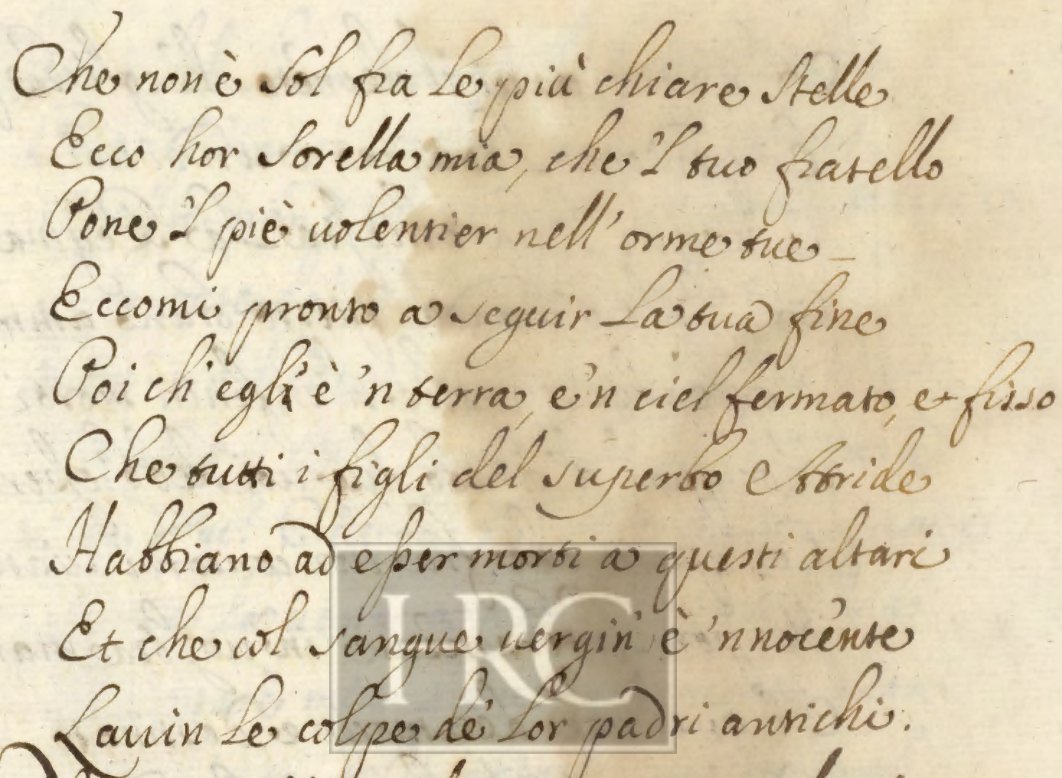 Che non è Sol fra le più chiare Stelle
Ecco hor Sorella mia, che 'l tuo fratello
Pone 'l piè uolentier nell' orme tue
Eccomi pronto a seguir la tua fine
Poi ch' egli è 'n terra, e 'n ciel fermato, e fisso
Che tutti i figli del superbo Attride
Habbiano ad eßer morti a questi altari
Et che col sangue uergin' è 'nnocente
Lauin le colpe de' lor padri antichi.
IRC